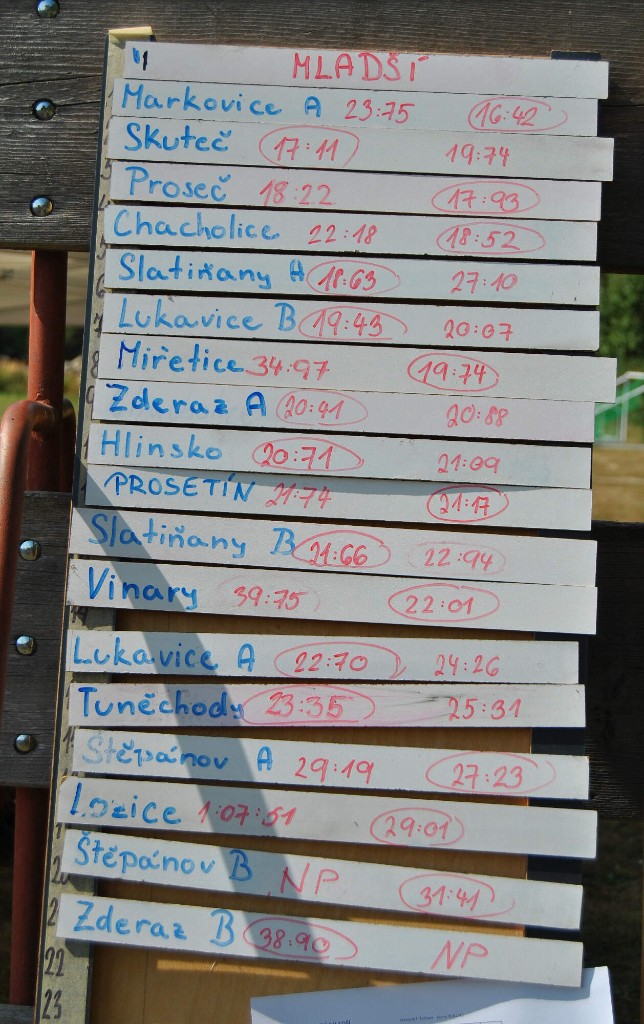 MLADŠÍ
Markovice A 23:75 16:42
Skuteč 17:11 19:74
Proseč 18:22 17:93
Chacholice 22:18 18:52
Slatiňany A 18:63 27:10
Lukavice B 19:43 20:07
Miřetice 34:97 19:74
Zderaz A 20:41 20:88
Hlinsko 20:71 21:09
PROSETÍN 21:74 21:17
Slatiňany B 21:66 22:94
Vinary 39:75 22:01
Lukavice A 22:70 24:26
Tuněchody 23:35 25:31
Štěpánov A 29:19 27:23
Lozice 1:07:51 29:01
Štěpánov B NP 31:41
Zderaz B 38:90 NP
22
23